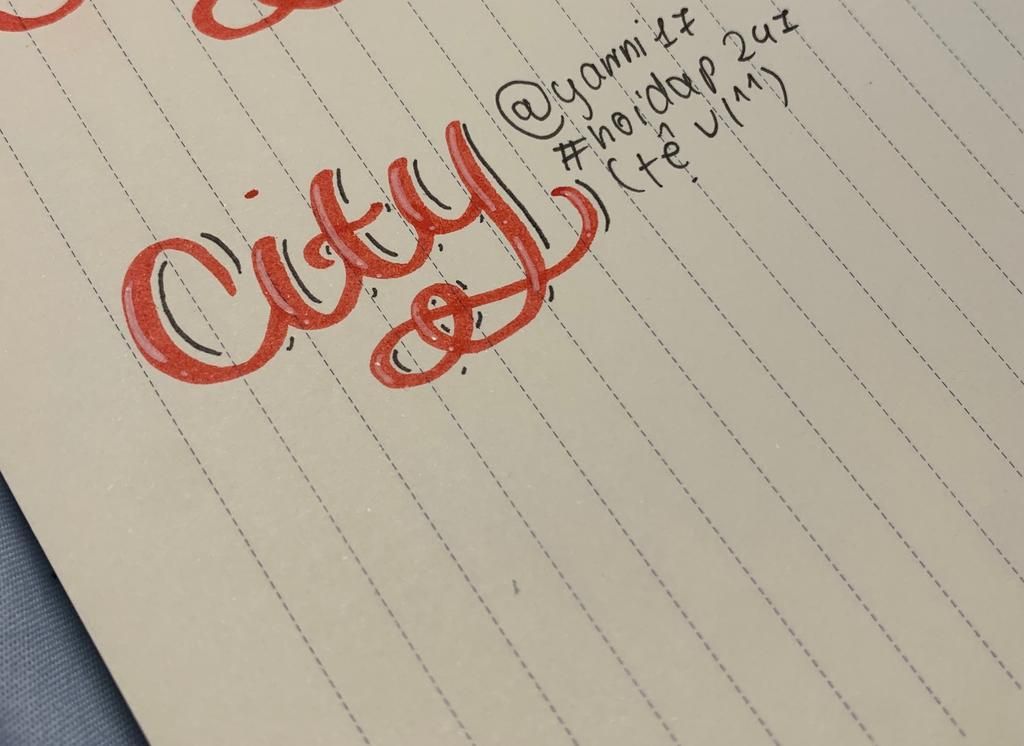 City
@yanni17
#hoidap247
(tệ v(11)